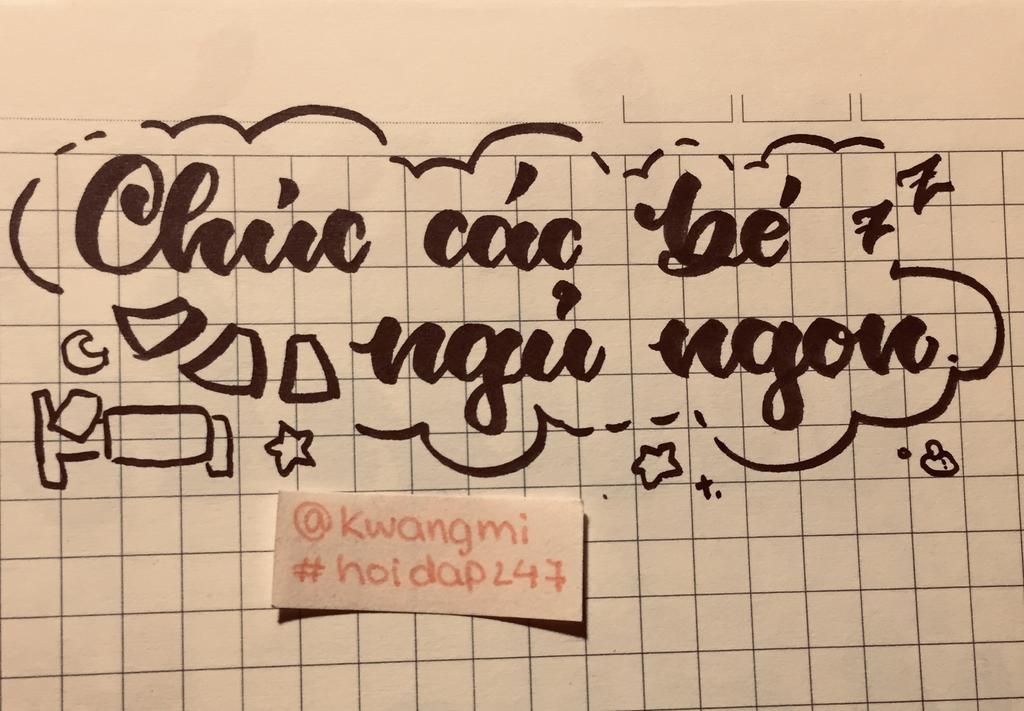 Chúc các bé
zz
ngủ ngon
@kwangmi
#hoidap247